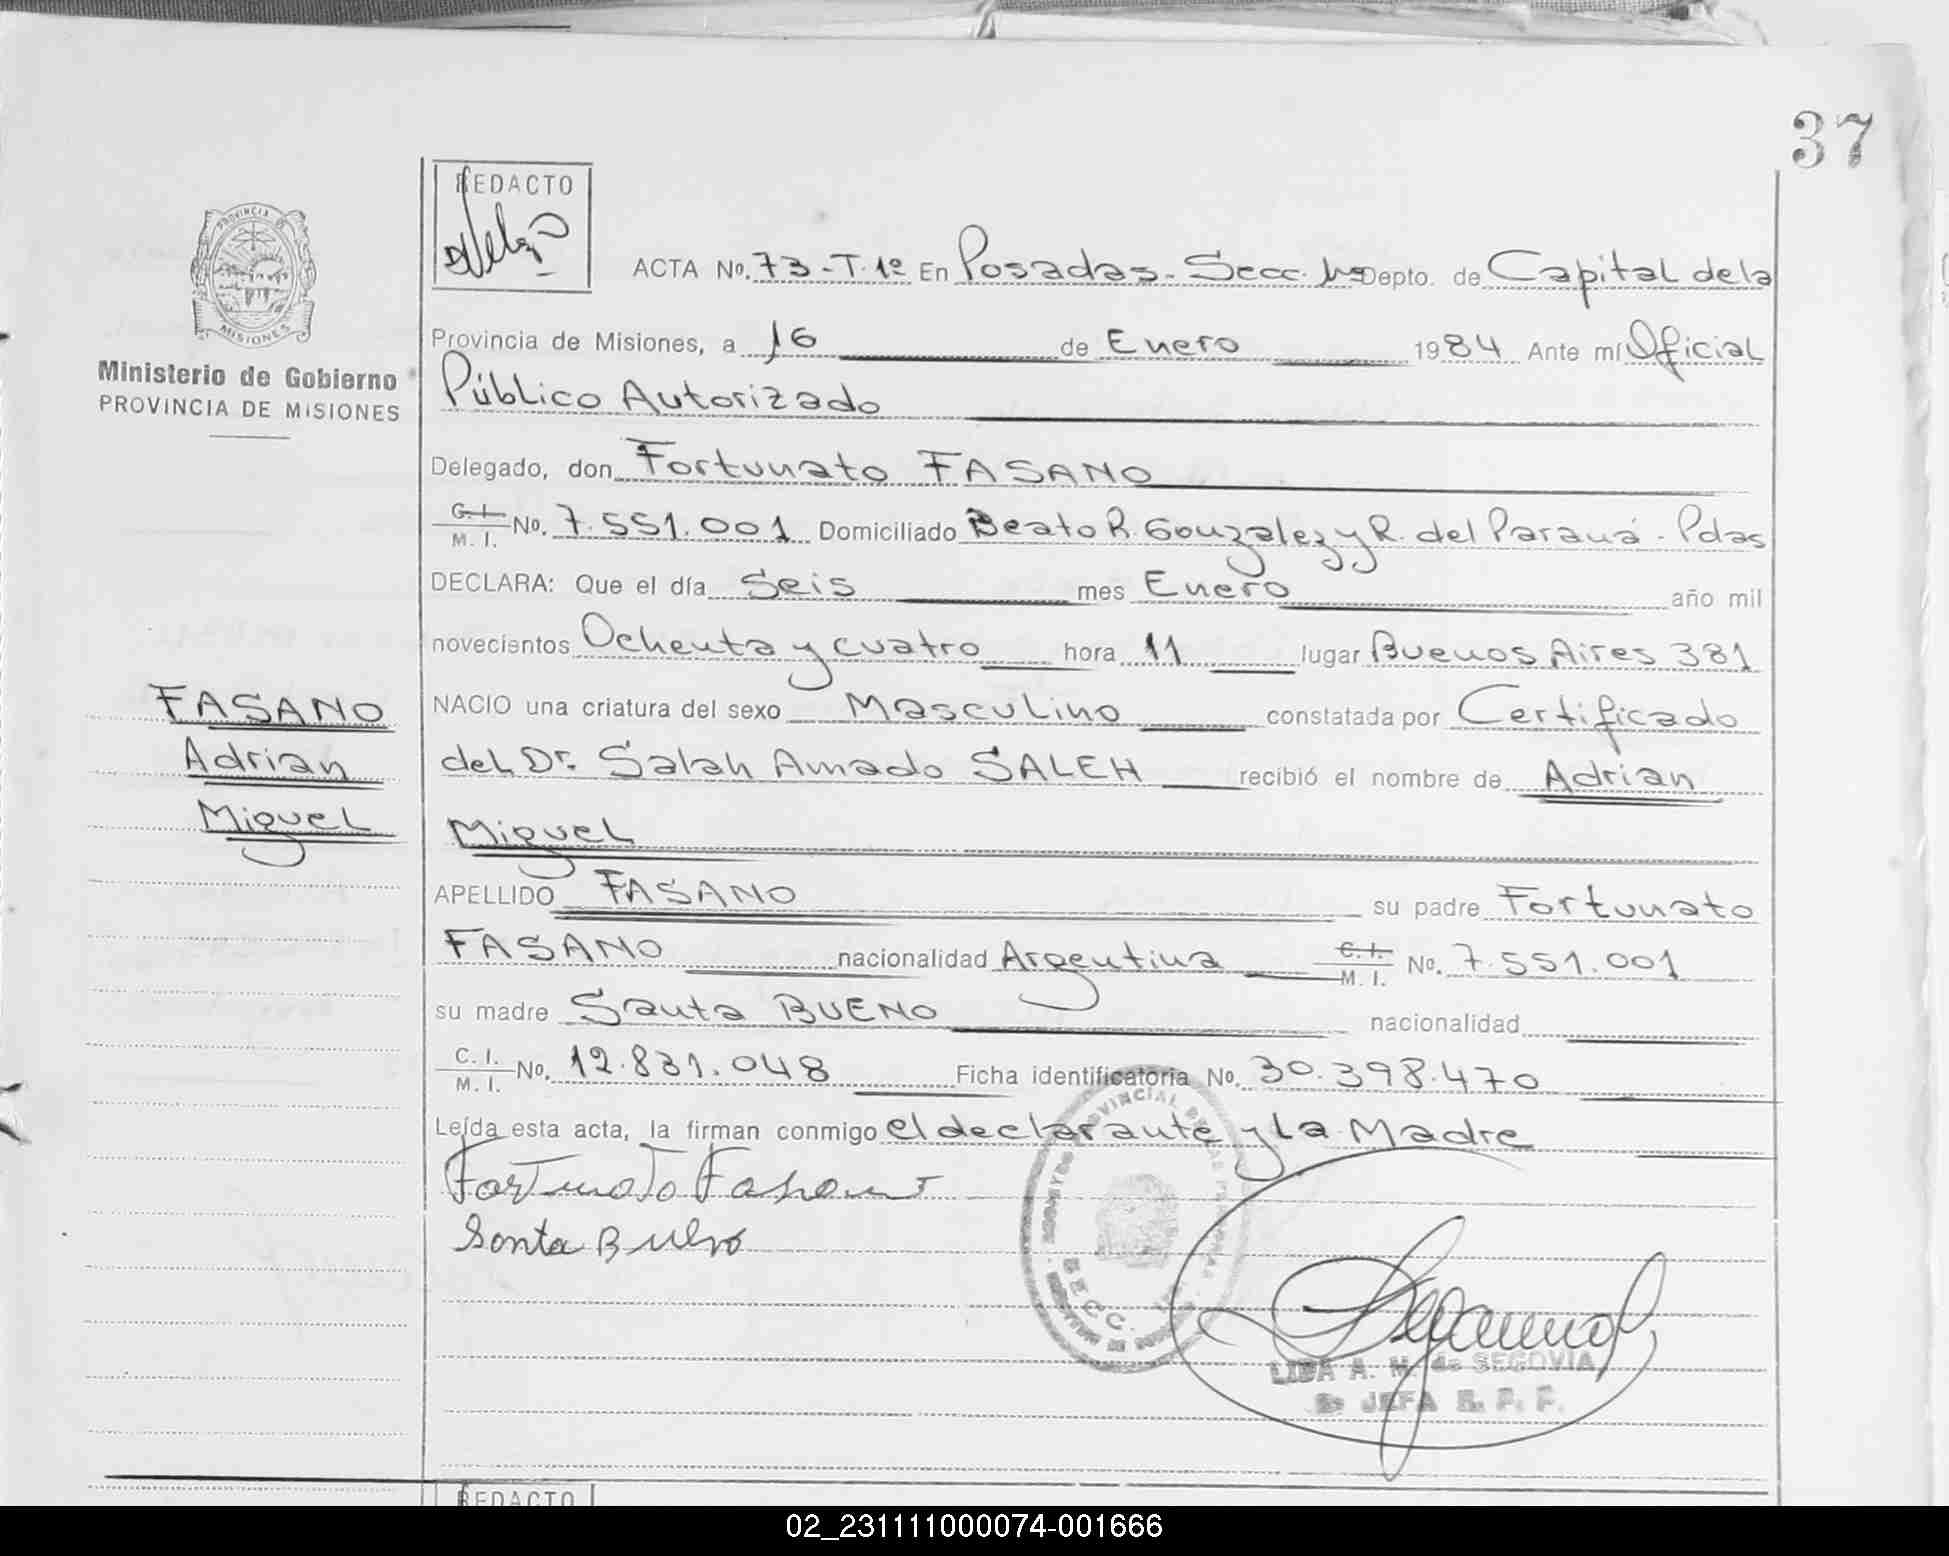 37
REDACTO
PROVINCIA DE
MISIONES
Ministerio de Gobierno
PROVINCIA DE MISIONES
ACTA No. 73-T.1º En Posadas-Secc. Depto. de Capital de la
Provincia de Misiones, a 16 de Enero 1984 Ante mí Oficial
Público Autorizado
Delegado, don Fortunato FASANO
C. I. M. I. No. 7.551.001 Domiciliado Beato R. Gonzalez y R. del Paraná - Pdas
DECLARA: Que el día Seis mes Enero año mil
novecientos Ochenta y cuatro hora 11 lugar Buenos Aires 381
FASANO
NACIO una criatura del sexo Masculino constatada por Certificado
Adrian
del Dr. Salah Amado SALEH recibió el nombre de Adrian
Miguel
Miguel
APELLIDO FASANO su padre Fortunato
FASANO nacionalidad Argentina C. I. M. I. No. 7.551.001
su madre Santa BUENO nacionalidad
C. I. M. I. No. 12.831.048 Ficha identificatoria No. 30.398.470
Leída esta acta, la firman conmigo el declarante y La Madre
Fortunato Fasano
Santa Bueno
SECC.
LIDA A. M. de SEGOVIA
JEFA R. P. P.
REDACTO
02_231111000074-001666